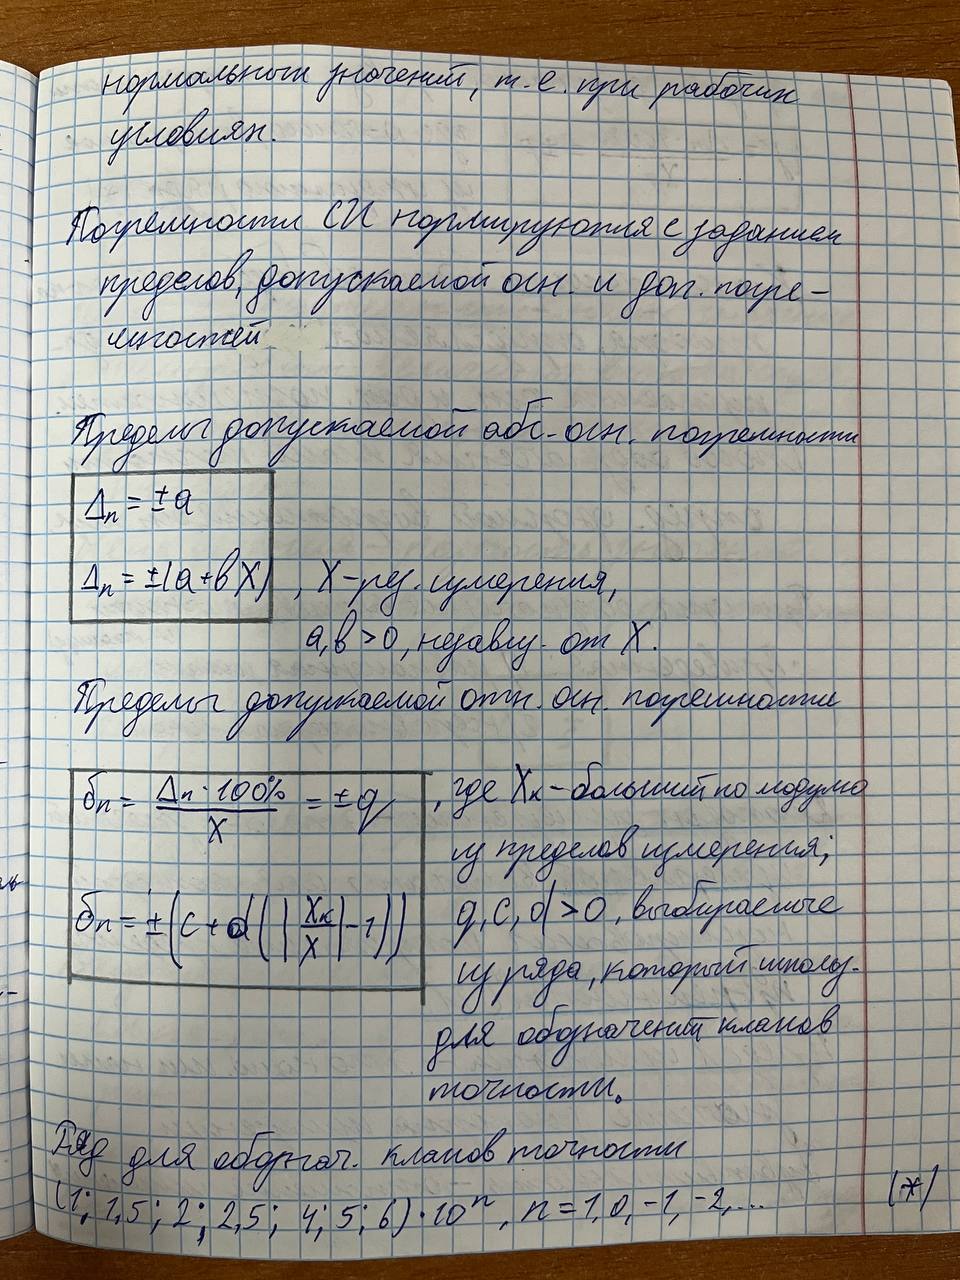 нормальных значений, т.е. при рабочих
условиях.
Погрешности СИ нормируются с заданием
пределов, допускаемой осн. и доп. погре-
шностей
Пределы допускаемой абс. осн. погрешности
Δп = ±a
Δп = ±(a+bX) , X-рез. измерения,
a,b > 0, независ. от X.
Пределы допускаемой отн. осн. погрешности
δп = Δп · 100% / X = ±q , где Xк - больший по модулю
из пределов измерения;
δп = ±(c + d(|Xк/X| - 1)) q, c, d > 0, выбираемые
из ряда, который использ.
для обозначений классов
точности.
Ряд для обознач. классов точности
(1; 1,5; 2; 2,5; 4; 5; 6) · 10ⁿ, n = 1, 0, -1, -2, ... (*)